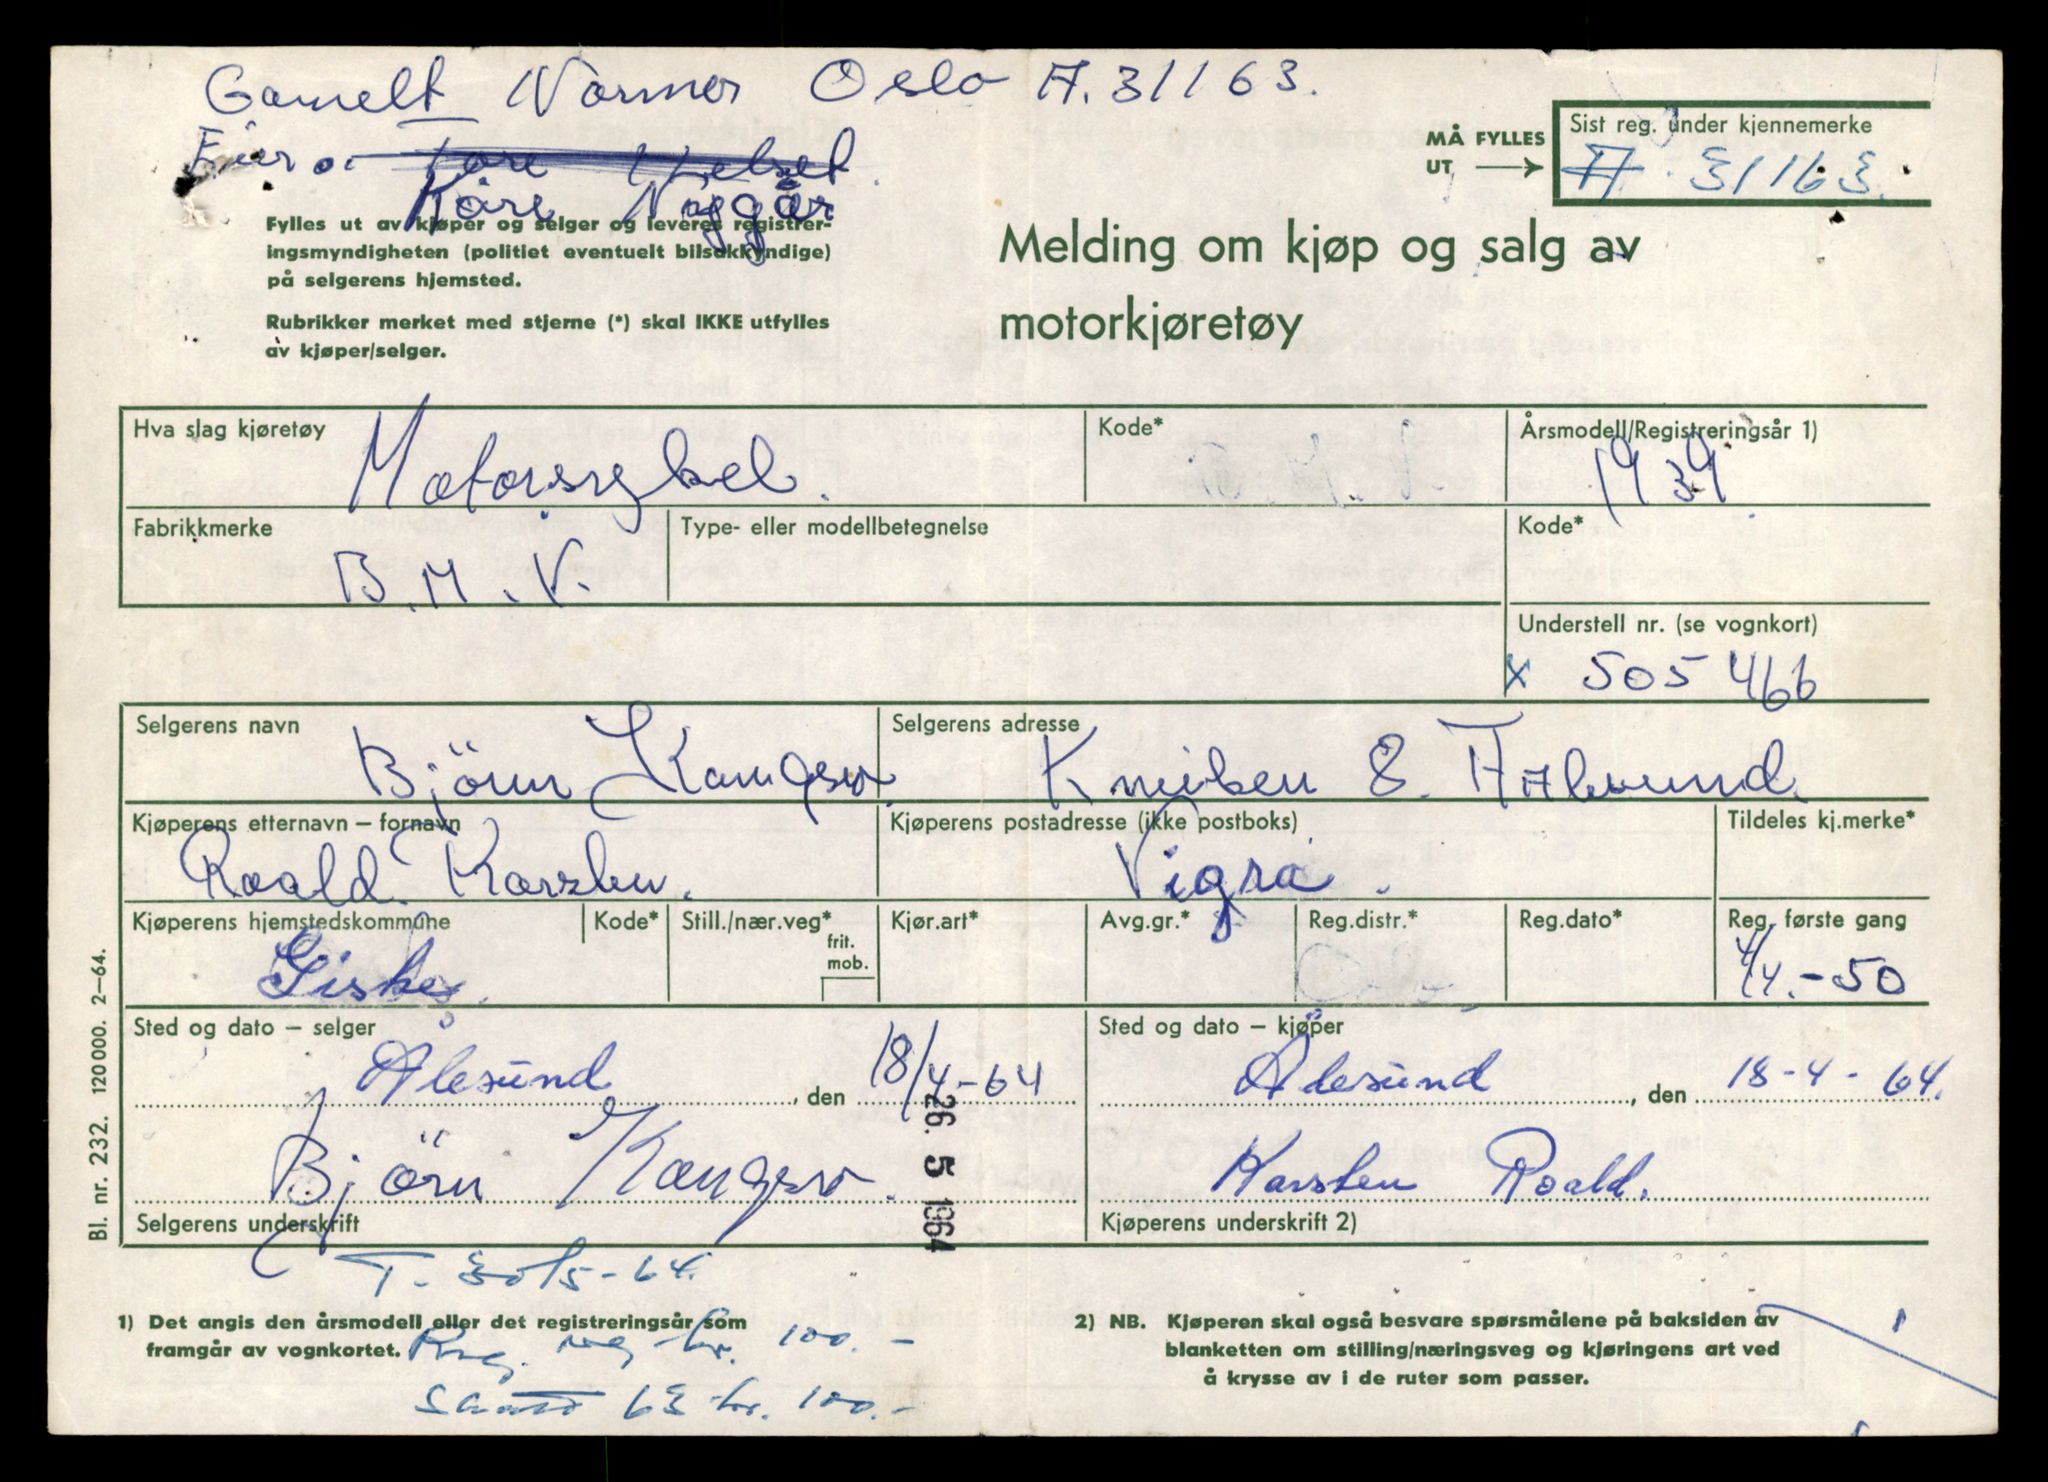 Gamelt Nommer Oslo A. 31163.
Eier. Tore
Kåre
MÅ FYLLES UT
Sist reg. under kjennemerke
A 31163.
Fylles ut av kjøper og selger og leveres registrer-
ingsmyndigheten (politiet eventuelt bilsakkyndige)
på selgerens hjemsted.
Rubrikker merket med stjerne (*) skal IKKE utfylles
av kjøper/selger.
Melding om kjøp og salg av
motorkjøretøy
Hva slag kjøretøy Kode* Årsmodell/Registreringsår 1)
Motorsykel. 1939
Fabrikkmerke Type- eller modellbetegnelse Kode*
B.M.V.
Understell nr. (se vognkort)
x 505466
Selgerens navn Selgerens adresse
Björn Kniben 8. Aalesund.
Kjøperens etternavn – fornavn Kjøperens postadresse (ikke postboks) Tildeles kj.merke*
Roald Karsten. Vigra.
Kjøperens hjemstedskommune Kode* Still./nær.veg* frit. mob. Kjør.art* Avg.gr.* Reg.distr.* Reg.dato* Reg. første gang
Giske. 4/4.-50
Sted og dato – selger Sted og dato – kjøper
Ålesund, den 18/4-64 Ålesund, den 18-4-64.
Björn Karsten Roald.
Selgerens underskrift Kjøperens underskrift 2)
26. 5 1964
T. 30/5-64.
1) Det angis den årsmodell eller det registreringsår som
framgår av vognkortet.
Reg. kr. 100.-
63 kr. 100.-
2) NB. Kjøperen skal også besvare spørsmålene på baksiden av
blanketten om stilling/næringsveg og kjøringens art ved
å krysse av i de ruter som passer.
Bl. nr. 232. 120 000. 2–64.